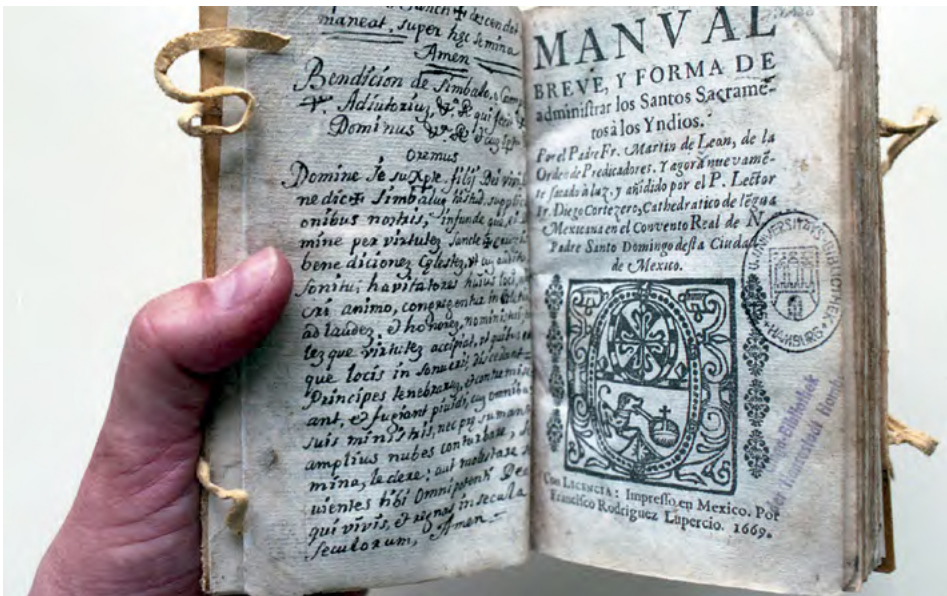 maneat, super hęc semina
Amen
Bendicion de Simbalo, o Camp
Adiutoriuʒ qui fecit
Dominus
oremus
Domine Jesu Xpte filij Dei vivi
nedic✝ Simbaluʒ hістuʒ supplicati
onibus nostris, infunde
mine per virtuteʒ Sanctę ✝ crucis
benedicioneʒ Cęlesteʒ, ut cuʒ audito
sonitu, havitatores huius loci, sa
cri animo, congregentur in Eclesia
ad laudeʒ, et honoreʒ, nominis tui
teʒ que virtuteʒ accipiat, ut quibus
que locis in sonuerit,
Principes tenebraruʒ, et contremisc
ant, et fugiant pividi, cuʒ omnibus
suis ministris, nec pręsumant
amplius nubes conturbare,
mina, ledere: aut molestare s
uientes tibi Omnipotenti Deo
qui vivis, et regnas in secula
seculorum, Amen
MANVAL
BREVE, Y FORMA DE
administrar los Santos Sacramē-
tos à los Yndios.
Por el Padre Fr. Martin de Leon, de la
Orden de Predicadores. Y agora nuevamē-
te sacado à luz, y añidido por el P. Lector
Fr. Diego Cortezero, Cathedratico de lēgua
Mexicana en el Convento Real de N.
Padre Santo Domingo desta Ciudad
de Mexico.
Con LICENCIA: Impresso en Mexico. Por
Francisco Rodriguez Lupercio. 1669.
U. UNIVERSITÄTS-BIBLIOTHEK
HAMBURG